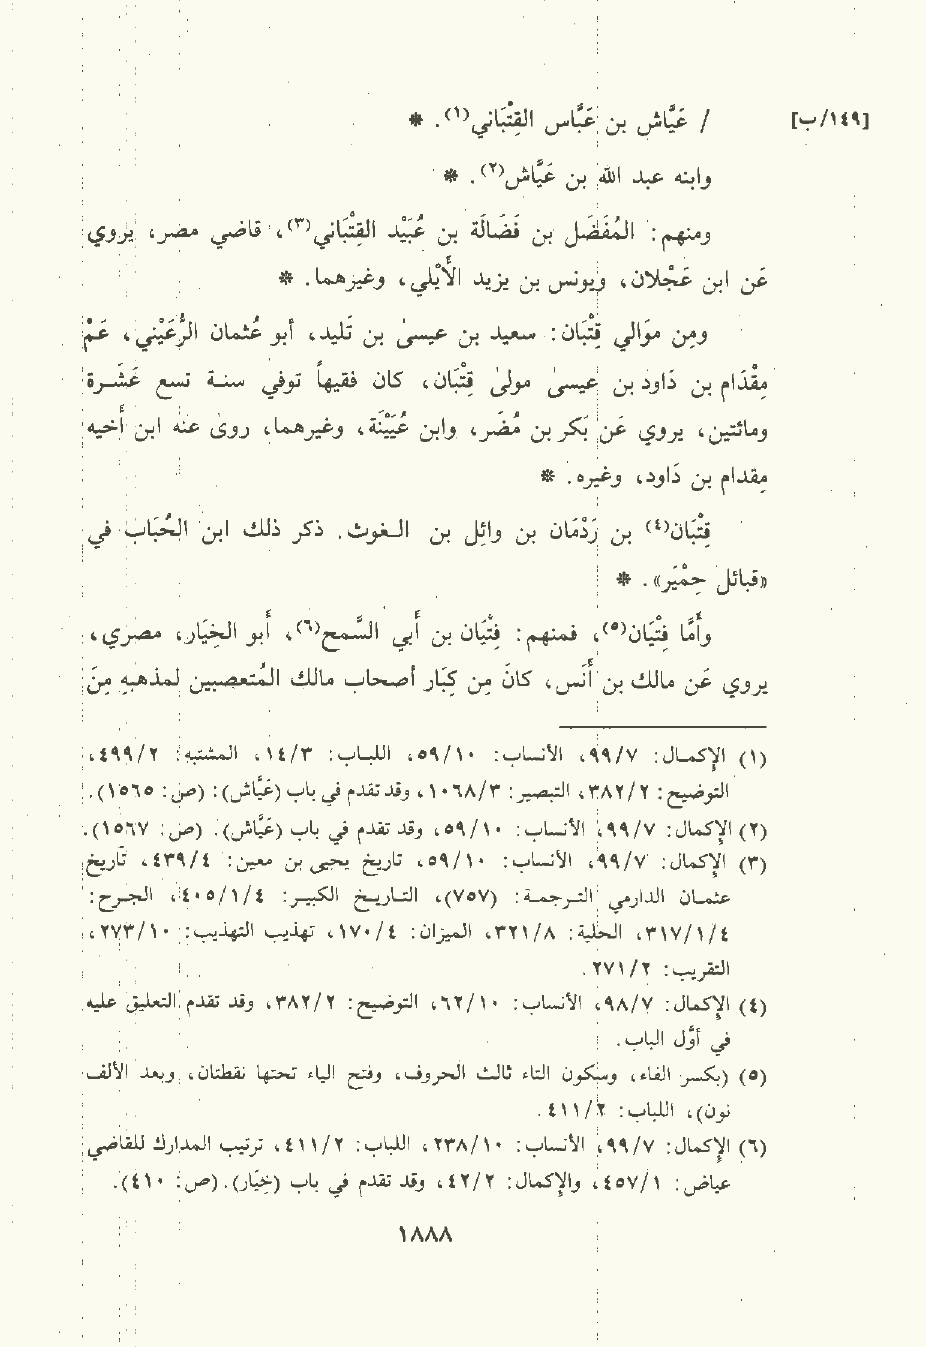 [١٤٩/ب] / عَيَّاش بن عَبَّاس القِتْبَاني(١). *
وابنه عبد الله بن عَيَّاش(٢). *
ومنهم: المُفَضَل بن فَضَالَة بن عُبَيْد القِتْبَاني(٣)، قاضي مضر، يروي
عَن ابن عَجْلان، ويونس بن يزيد الأَيْلي، وغيزهما. *
ومِن موَالي قِتْبَان: سعيد بن عيسىٰ بن تَليد، أبو عُثمان الرُّعَيْني، عَمْ
مِقْدَام بن دَاود بن عيسىٰ مولىٰ قِتْبَان، كان فقيهاً توفي سـنـة تسع عَشَـرة
ومائتين، يروي عَن بَكر بن مُضَر، وابن عُيَيْنَة، وغيرهما، روىٰ عنه ابن أَخيه
مِقدام بن دَاود، وغيره. *
قِتْبَان(٤) بن رَدْمَان بن وائِل بن الـغـوث. ذكر ذلك ابن الحُبَاب في
«قبائل حِمْيَر». *
وأَمَّا فِتْيَان(٥)، فمنهم: فِتْيَان بن أَبي السَّمح(٦)، أَبو الخِيَار، مصري،
يروي عَن مالك بن أَنَس، كانَ مِن كِبَار أصحاب مالك المُتعصبين لمذهبهِ مِنَ
(١) الإكمـال: ٩٩/٧، الأنسـاب: ٥٩/١٠، اللبـاب: ١٤/٣، المشتبه: ٤٩٩/٢،
التوضيح: ٣٨٢/٢، التبصير: ١٠٦٨/٣، وقد تقدم في باب (عَيَّاش): (ص: ١٥٦٥).
(٢) الإكمال: ٩٩/٧، الأنساب: ٥٩/١٠، وقد تقدم في باب (عَيَّاش). (ص: ١٥٦٧).
(٣) الإكمال: ٩٩/٧، الأنساب: ٥٩/١٠، تاريخ يحيى بن معين: ٤٣٩/٤، تَاريخ
عثمـان الدارمي التـرجـمـة: (٧٥٧)، التـاريـخ الكبيـر: ٤٠٥/١/٤، الجـرح:
٣١٧/١/٤، الحلية: ٣٢١/٨، الميزان: ١٧٠/٤، تهذيب التهذيب: ٢٧٣/١٠،
التقريب: ٢٧١/٢.
(٤) الإكمال: ٩٨/٧، الأنساب: ٦٢/١٠، التوضيح: ٣٨٢/٢، وقد تقدم التعليق عليه
في أوَّل الباب.
(٥) (بكسر الفاء، وسكون التاء ثالث الحروف، وفتح الياء تحتها نقطتان، وبعد الألف
نون)، اللباب: ٤١١/٢.
(٦) الإكمال: ٩٩/٧، الأنساب: ٢٣٨/١٠، اللباب: ٤١١/٢، ترتيب المدارك للقاضي
عياض: ٤٥٧/١، والإكمال: ٤٢/٢، وقد تقدم في باب (خِيَار). (ص: ٤١٠).
١٨٨٨